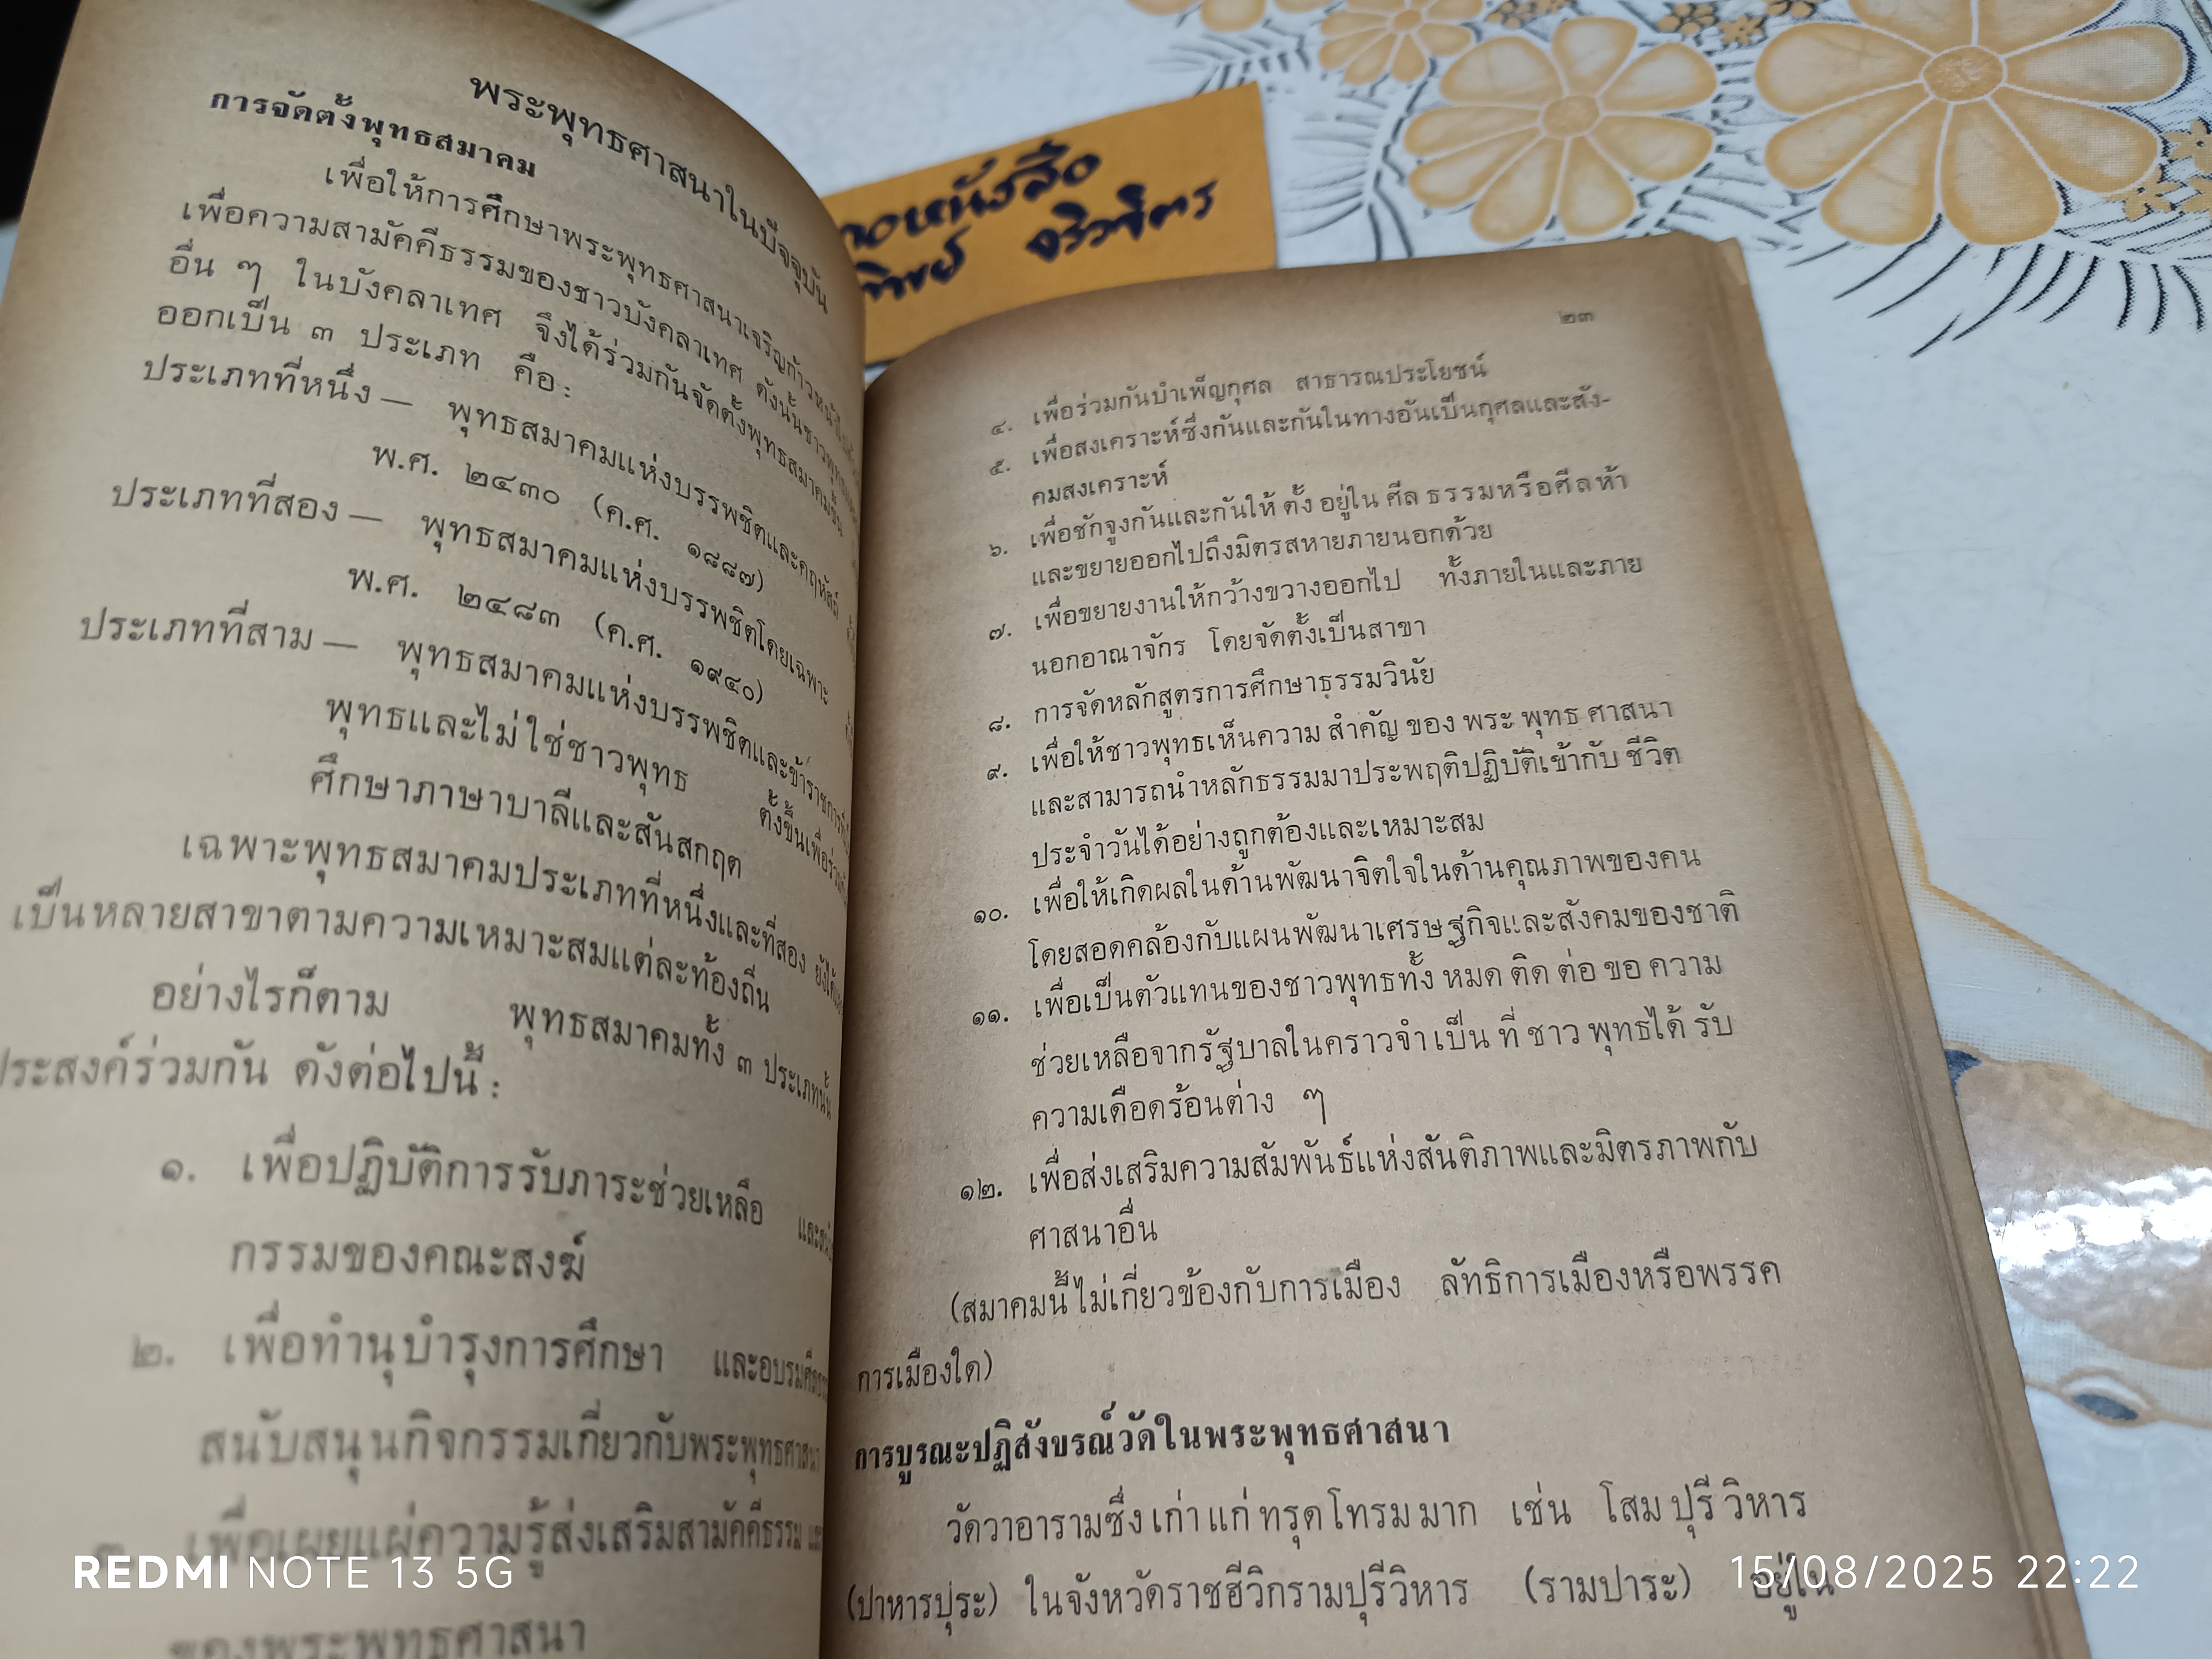 พระพุทธศาสนาในปัจจุบัน
การจัดตั้งพุทธสมาคม
เพื่อให้การศึกษาพระพุทธศาสนาเจริญก้าวหน้า
เพื่อความสามัคคีธรรมของชาวบังคลาเทศ ดังนั้นชาวพุทธ
อื่น ๆ ในบังคลาเทศ จึงได้ร่วมกันจัดตั้งพุทธสมาคมขึ้น
ออกเป็น ๓ ประเภท คือ :
ประเภทที่หนึ่ง — พุทธสมาคมแห่งบรรพชิตและคฤหัสถ์
พ.ศ. ๒๔๓๐ (ค.ศ. ๑๘๘๗)
ประเภทที่สอง — พุทธสมาคมแห่งบรรพชิตโดยเฉพาะ
พ.ศ. ๒๔๘๓ (ค.ศ. ๑๙๔๐)
ประเภทที่สาม — พุทธสมาคมแห่งบรรพชิตและข้าราชการที่
พุทธและไม่ใช่ชาวพุทธ ตั้งขึ้นเพื่อร่วมกัน
ศึกษาภาษาบาลีและสันสกฤต
เฉพาะพุทธสมาคมประเภทที่หนึ่งและที่สอง ยังได้
เป็นหลายสาขาตามความเหมาะสมแต่ละท้องถิ่น
อย่างไรก็ตาม พุทธสมาคมทั้ง ๓ ประเภทนั้น
ประสงค์ร่วมกัน ดังต่อไปนี้ :
๑. เพื่อปฏิบัติการรับภาระช่วยเหลือ
กรรมของคณะสงฆ์
๒. เพื่อทำนุบำรุงการศึกษา และอบรม
สนับสนุนกิจกรรมเกี่ยวกับพระพุทธศาสนา
เพื่อเผยแผ่ความรู้ส่งเสริมสามัคคีธรรม
ของพระพุทธศาสนา
หนังสือ
จริวจิตร
๒๓
๔. เพื่อร่วมกันบำเพ็ญกุศล สาธารณประโยชน์
๕. เพื่อสงเคราะห์ซึ่งกันและกันในทางอันเป็นกุศลและสัง-
คมสงเคราะห์
๖. เพื่อชักจูงกันและกันให้ ตั้ง อยู่ใน ศีล ธรรมหรือศีลห้า
และขยายออกไปถึงมิตรสหายภายนอกด้วย
๗. เพื่อขยายงานให้กว้างขวางออกไป ทั้งภายในและภาย
นอกอาณาจักร โดยจัดตั้งเป็นสาขา
๘. การจัดหลักสูตรการศึกษาธรรมวินัย
๙. เพื่อให้ชาวพุทธเห็นความ สำคัญ ของ พระ พุทธ ศาสนา
และสามารถนำหลักธรรมมาประพฤติปฏิบัติเข้ากับ ชีวิต
ประจำวันได้อย่างถูกต้องและเหมาะสม
๑๐. เพื่อให้เกิดผลในด้านพัฒนาจิตใจในด้านคุณภาพของคน
โดยสอดคล้องกับแผนพัฒนาเศรษฐกิจและสังคมของชาติ
๑๑. เพื่อเป็นตัวแทนของชาวพุทธทั้ง หมด ติด ต่อ ขอ ความ
ช่วยเหลือจากรัฐบาลในคราวจำเป็น ที่ ชาว พุทธได้ รับ
ความเดือดร้อนต่าง ๆ
๑๒. เพื่อส่งเสริมความสัมพันธ์แห่งสันติภาพและมิตรภาพกับ
ศาสนาอื่น
(สมาคมนี้ไม่เกี่ยวข้องกับการเมือง ลัทธิการเมืองหรือพรรค
การเมืองใด)
การบูรณะปฏิสังขรณ์วัดในพระพุทธศาสนา
วัดวาอารามซึ่ง เก่า แก่ ทรุด โทรม มาก เช่น โสม ปุรี วิหาร
(ปาหารปุระ) ในจังหวัดราชฮีวิกรามปุรีวิหาร (รามปาระ) อยู่ใน
REDMI NOTE 13 5G
15/08/2025 22:22